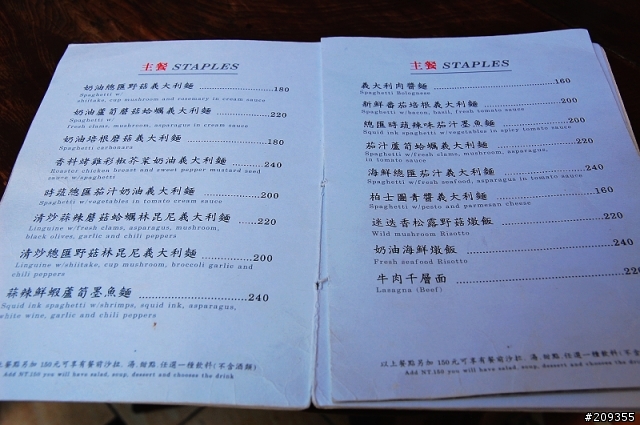 主餐 STAPLES
奶油總匯野菇義大利麵 180
Spaghetti w/
shiitake, cup mushroom and rosemary in cream sauce
奶油蘆筍蘑菇蛤蠣義大利麵 220
Spaghetti w/
fresh clams, mushroom, asparagus in cream sauce
奶油培根蘑菇義大利麵 180
Spaghetti carbonara
香料烤雞彩椒芥茉奶油義大利麵 240
Roaster chicken breast and sweet pepper mustard seed
時蔬總匯茄汁奶油義大利麵 200
Spaghetti w/vegetables in tomato cream sauce
清炒蒜辣蘑菇蛤蠣林昆尼義大利麵 220
Linguine w/fresh clams, asparagus, mushroom,
black olives, garlic and chili peppers
清炒總匯野菇林昆尼義大利麵 200
Linguine w/shiitake, cup mushroom, broccoli garlic and
chili peppers
蒜辣鮮蝦蘆筍墨魚麵 240
Squid ink spaghetti w/shrimps, squid ink, asparagus,
white wine, garlic and chili peppers
以上餐點另加 150元可享有餐前沙拉、湯、甜點 任選一種飲料(不含酒類)
Add NT.150 you will have salad, soup, dessert and chooses the drink
主餐 STAPLES
義大利肉醬麵 160
Spaghetti Bolognese
新鮮番茄培根義大利麵 200
Spaghetti w/bacon, basil, fresh tomato sauce
總匯時蔬辣味茄汁墨魚麵 200
Squid ink spaghetti w/vegetables in spicy tomato sauce
茄汁蘆筍蛤蠣義大利麵 220
Spaghetti w/fresh clams, mushroom, asparagus,
in tomato sauce
海鮮總匯茄汁義大利麵 240
Spaghetti w/fresh seafood, asparagus in tomato sauce
柏士圖青醬義大利麵 160
Spaghetti w/pesto and parmesan cheese
迷迭香松露野菇燉飯 220
Wild mushroom Risotto
奶油海鮮燉飯 240
Fresh seafood Risotto
牛肉千層面 220
Lasagna (Beef)
以上餐點另加 150元可享有餐前沙拉、湯、甜點 任選一種飲料(不含
Add NT.150 you will have salad, soup, dessert and chooses the drink
#209355